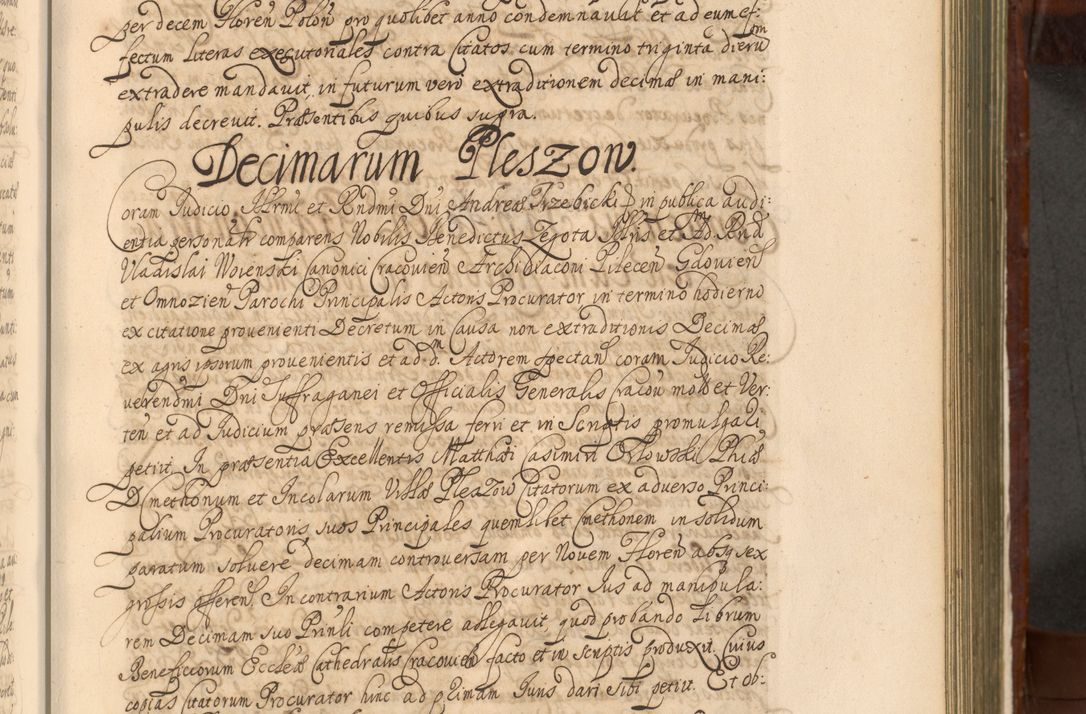 per decem Floren̄ Polon̄ pro quolibet anno condemnavit et ad eum ef:
fectum literas executoriales contra Citatos cum termino triginta dierū
extradere mandavit, in futurum verò extraditionem decimæ in mani:
pulis decrevit. Præsentibus quibus supra.
Decimarum Pleszow.
Coram Judicio Illrmi et Rndmi Dni Andreæ Trzebicki in publica audi:
entia personalr comparens Nobilis Benedictus Zegota Illris et Ad Rnd
Vladislai Woienski Canonici Cracovien̄ Archidiaconi Pilecen̄ Gdovien̄
et Omnozien̄ Parochi Principalis Actoris Procurator in termino hodierno
ex citatione provenienti Decretum in Causa non extraditionis Decimæ
ex agris ipsorum provenientis et ad d. Actorem spectan̄ coram Judicio Re:
verendmi Dni Suffraganei et Officialis Generalis Cracov mot̄ et Ver:
ten̄ et ad Judicium præsens remissa ferri et in Scriptis promulgari
petiit. In præsentia Excellentis Matthæi Casimiri Orlowski Phiæ
D Cmethonum et Incolarum Villæ Pleszow Citatorum ex adverso Princi:
palium Procuratoris, suos Principales quemlibet Cmethonem in solidum
paratum solvere decimam controversam per Novem Floren̄ absq sex
grossis offeren̄. In contrarium Actoris Procurator Jus ad manipula:
rem Decimam suo Prinli competere allegavit, quod probando Librum
Beneficiorum Ecclæ Cathedralis Cracovien̄ facto et in scriptis produxit. Cuius
copias Citatorum Procurator hinc ad primam Juris dari sibi petiit. Et ob: